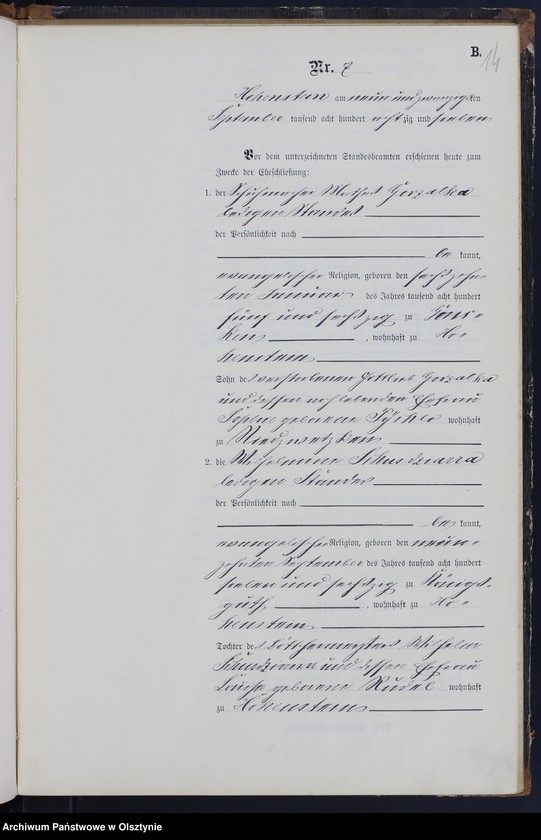 B.
14
Nr. 7
Hohenstein am neun und zwanzigsten
September tausend acht hundert achtzig und sieben
Vor dem unterzeichneten Standesbeamten erschienen heute zum
Zwecke der Eheschließung:
1. der Schuhmacher Mathes Gorzalka
ledigen Standes
der Persönlichkeit nach
be kannt,
evangelischer Religion, geboren den sechszehn-
ten Januar des Jahres tausend acht hundert
fünf und sechszig zu
ken , wohnhaft zu Ho-
henstein
Sohn des verstorbenen Gottlieb Gorzalka
und dessen noch lebenden Ehefrau
Sophie geborene wohnhaft
zu Niedzwetzken
2. die Wilhelmine
ledigen Standes
der Persönlichkeit nach
be kannt,
evangelischer Religion, geboren den neun-
zehnten September des Jahres tausend acht hundert
sieben und sechszig zu Königs-
guth , wohnhaft zu Ho-
henstein
Tochter des Böttchermeisters Wilhelm
und dessen Ehefrau
Louise geborene Rudel wohnhaft
zu Hohenstein
Archiwum Państwowe w Olsztynie